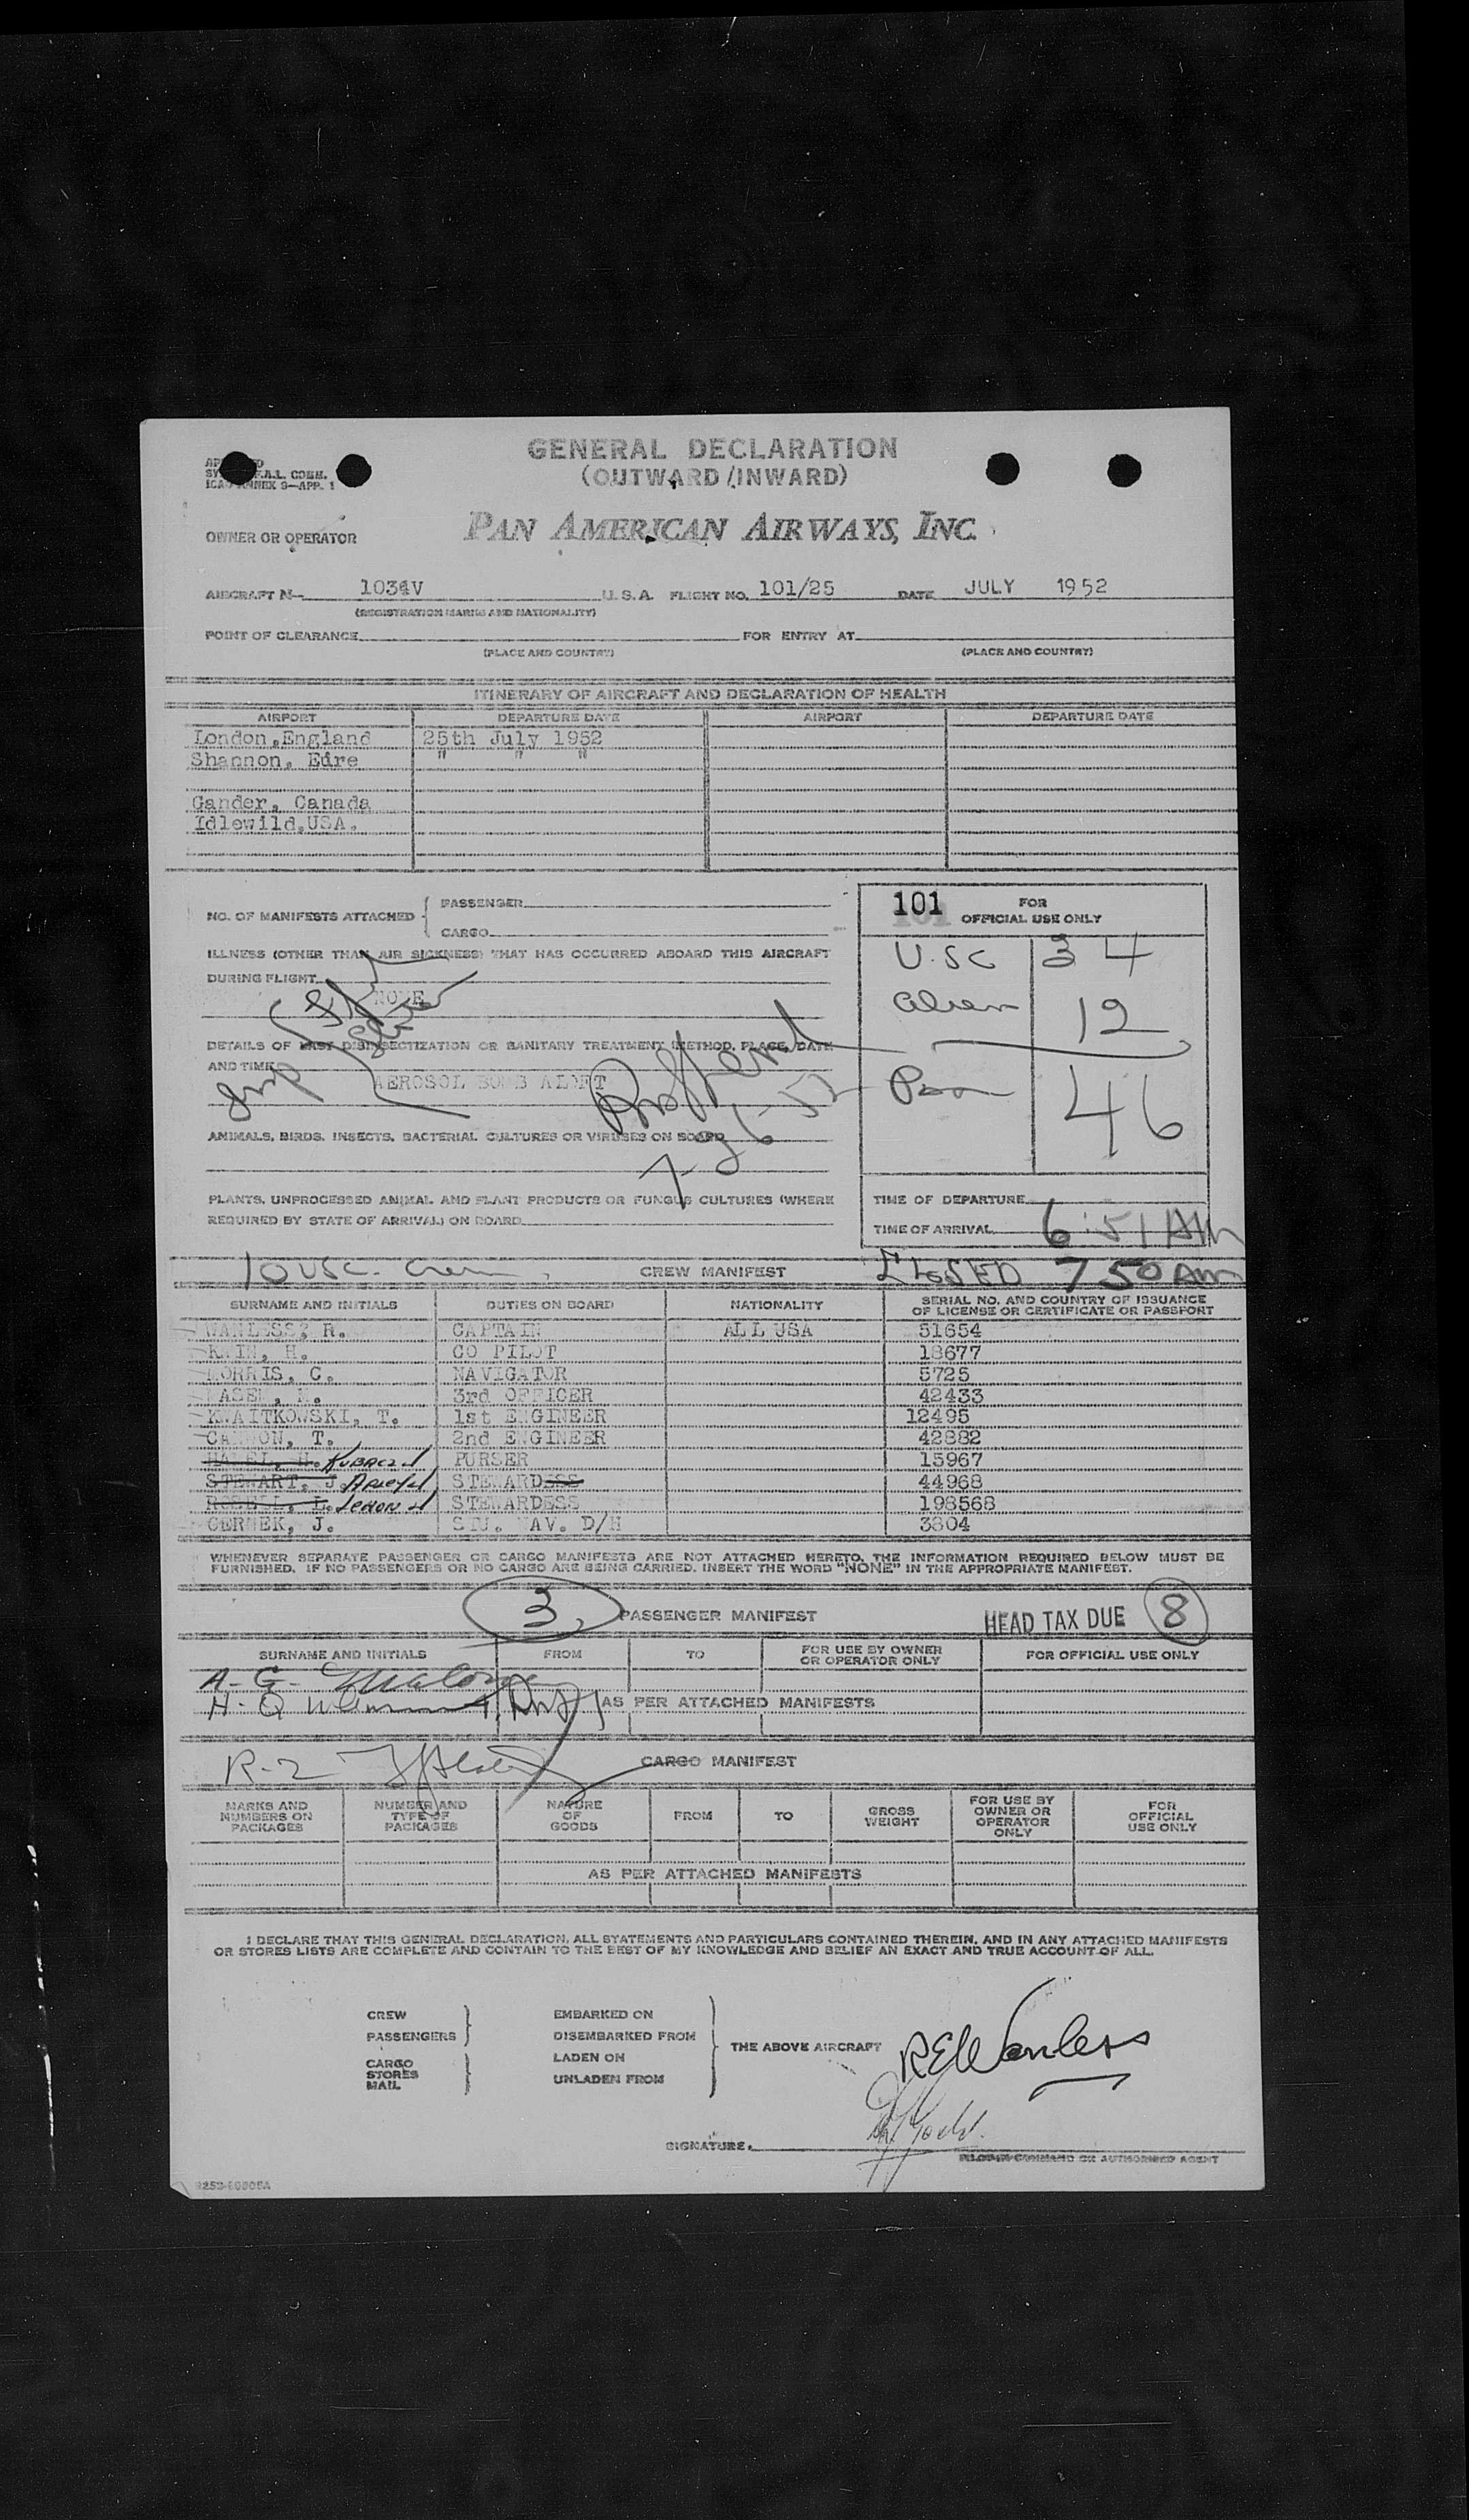 GENERAL DECLARATION
(OUTWARD/INWARD)
F.A.L. COMM.
ICAO ANNEX 9—APP. 1
OWNER OR OPERATOR PAN AMERICAN AIRWAYS, INC.
AIRCRAFT N— 1034V U.S.A. FLIGHT NO. 101/25 DATE JULY 1952
(REGISTRATION MARKS AND NATIONALITY)
POINT OF CLEARANCE FOR ENTRY AT
(PLACE AND COUNTRY) (PLACE AND COUNTRY)
ITINERARY OF AIRCRAFT AND DECLARATION OF HEALTH
AIRPORT DEPARTURE DATE AIRPORT DEPARTURE DATE
London,England 25th July 1952
Shannon, Eire " " "
Gander, Canada
Idlewild,USA.
NO. OF MANIFESTS ATTACHED { PASSENGER
CARGO
101 FOR
OFFICIAL USE ONLY
ILLNESS (OTHER THAN AIR SICKNESS) THAT HAS OCCURRED ABOARD THIS AIRCRAFT
DURING FLIGHT
NONE
U.SC 34
alien 12
DETAILS OF LAST DISINSECTIZATION OR SANITARY TREATMENT (METHOD, PLACE, DATE
AND TIME
AEROSOL BOMB ALOFT
46
7-26-52
ANIMALS, BIRDS, INSECTS, BACTERIAL CULTURES OR VIRUSES ON BOARD
PLANTS, UNPROCESSED ANIMAL AND PLANT PRODUCTS OR FUNGUS CULTURES (WHERE
REQUIRED BY STATE OF ARRIVAL) ON BOARD
TIME OF DEPARTURE
TIME OF ARRIVAL 6:51 AM
10 USC. Crew CREW MANIFEST CLOSED 7 50 Am
SURNAME AND INITIALS DUTIES ON BOARD NATIONALITY SERIAL NO. AND COUNTRY OF ISSUANCE
OF LICENSE OR CERTIFICATE OR PASSPORT
WANLESS, R. CAPTAIN ALL USA 51654
KAIM, H. CO PILOT 18677
MORRIS, C. NAVIGATOR 5725
3rd OFFICER 42433
KWAITKOWSKI, T. 1st ENGINEER 12495
CANNON, T. 2nd ENGINEER 42882
PURSER 15967
STEWART, J. STEWARDESS 44968
STEWARDESS 198568
CERNEK, J. STU. NAV. D/H 3804
WHENEVER SEPARATE PASSENGER OR CARGO MANIFESTS ARE NOT ATTACHED HERETO, THE INFORMATION REQUIRED BELOW MUST BE
FURNISHED. IF NO PASSENGERS OR NO CARGO ARE BEING CARRIED, INSERT THE WORD "NONE" IN THE APPROPRIATE MANIFEST.
3 PASSENGER MANIFEST HEAD TAX DUE 8
SURNAME AND INITIALS FROM TO FOR USE BY OWNER
OR OPERATOR ONLY FOR OFFICIAL USE ONLY
A. G.
AS PER ATTACHED MANIFESTS
R-2 CARGO MANIFEST
MARKS AND
NUMBERS ON
PACKAGES
NUMBER AND
TYPE OF
PACKAGES
NATURE
OF
GOODS
FROM TO GROSS
WEIGHT
FOR USE BY
OWNER OR
OPERATOR
ONLY
FOR
OFFICIAL
USE ONLY
AS PER ATTACHED MANIFESTS
I DECLARE THAT THIS GENERAL DECLARATION, ALL STATEMENTS AND PARTICULARS CONTAINED THEREIN, AND IN ANY ATTACHED MANIFESTS
OR STORES LISTS ARE COMPLETE AND CONTAIN TO THE BEST OF MY KNOWLEDGE AND BELIEF AN EXACT AND TRUE ACCOUNT OF ALL.
CREW EMBARKED ON
PASSENGERS DISEMBARKED FROM
THE ABOVE AIRCRAFT RE Wanless
CARGO LADEN ON
STORES
MAIL UNLADEN FROM
SIGNATURE
PILOT-IN-COMMAND OR AUTHORISED AGENT